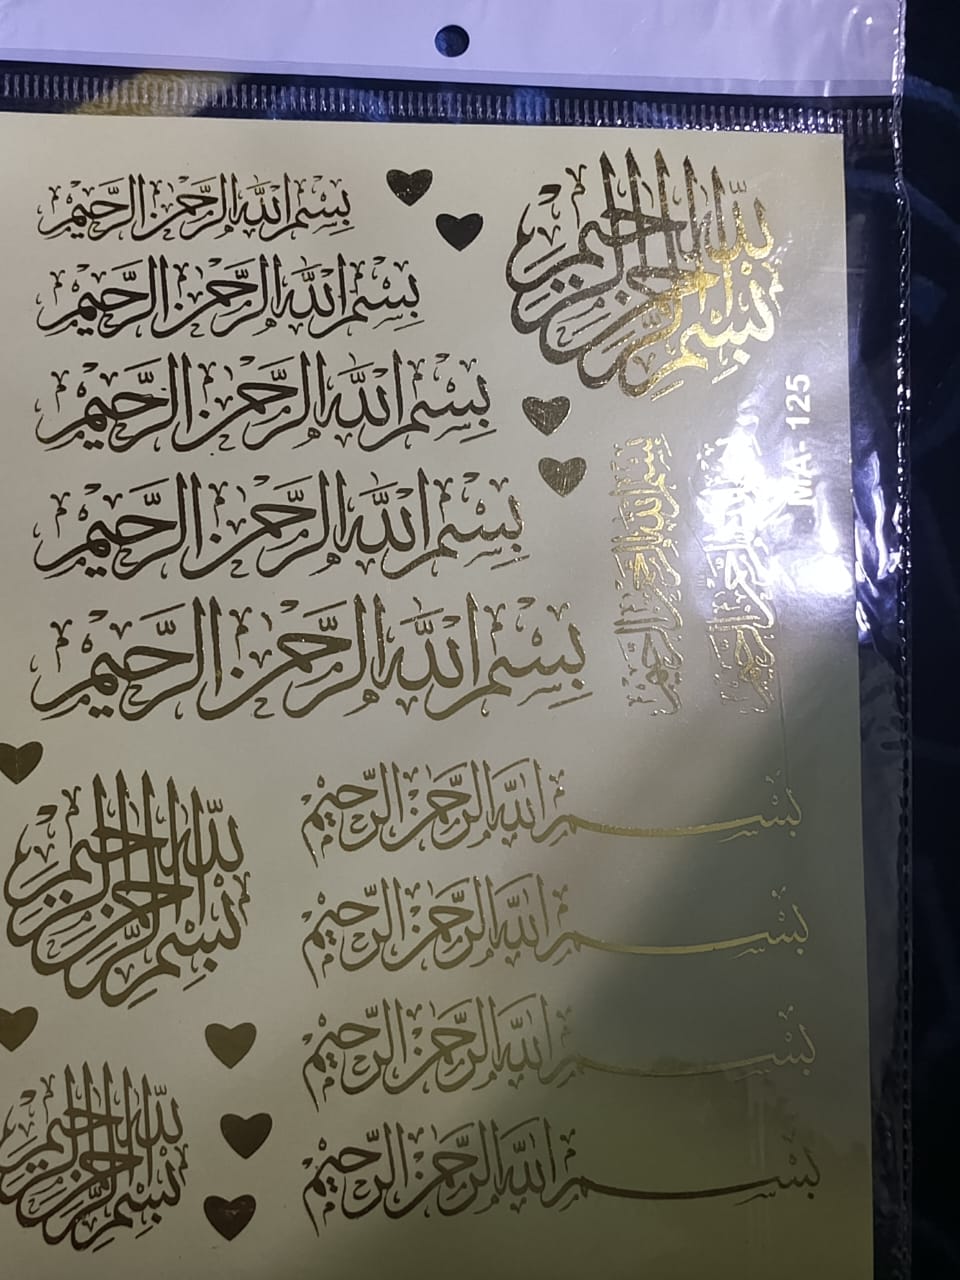 بِسْمِ اللَّهِ الرَّحْمَنِ الرَّحِيمِ
بِسْمِ اللَّهِ الرَّحْمَنِ الرَّحِيمِ
بِسْمِ اللَّهِ الرَّحْمَنِ الرَّحِيمِ
بِسْمِ اللَّهِ الرَّحْمَنِ الرَّحِيمِ
بِسْمِ اللَّهِ الرَّحْمَنِ الرَّحِيمِ
بِسْمِ اللَّهِ الرَّحْمَنِ الرَّحِيمِ
بِسْمِ اللَّهِ الرَّحْمَنِ الرَّحِيمِ
بِسْمِ اللَّهِ الرَّحْمَنِ الرَّحِيمِ
MA- 125
بِسْمِ اللَّهِ الرَّحْمَنِ الرَّحِيمِ
بِسْمِ اللَّهِ الرَّحْمَنِ الرَّحِيمِ
بِسْمِ اللَّهِ الرَّحْمَنِ الرَّحِيمِ
بِسْمِ اللَّهِ الرَّحْمَنِ الرَّحِيمِ
بِسْمِ اللَّهِ الرَّحْمَنِ الرَّحِيمِ
بِسْمِ اللَّهِ الرَّحْمَنِ الرَّحِيمِ